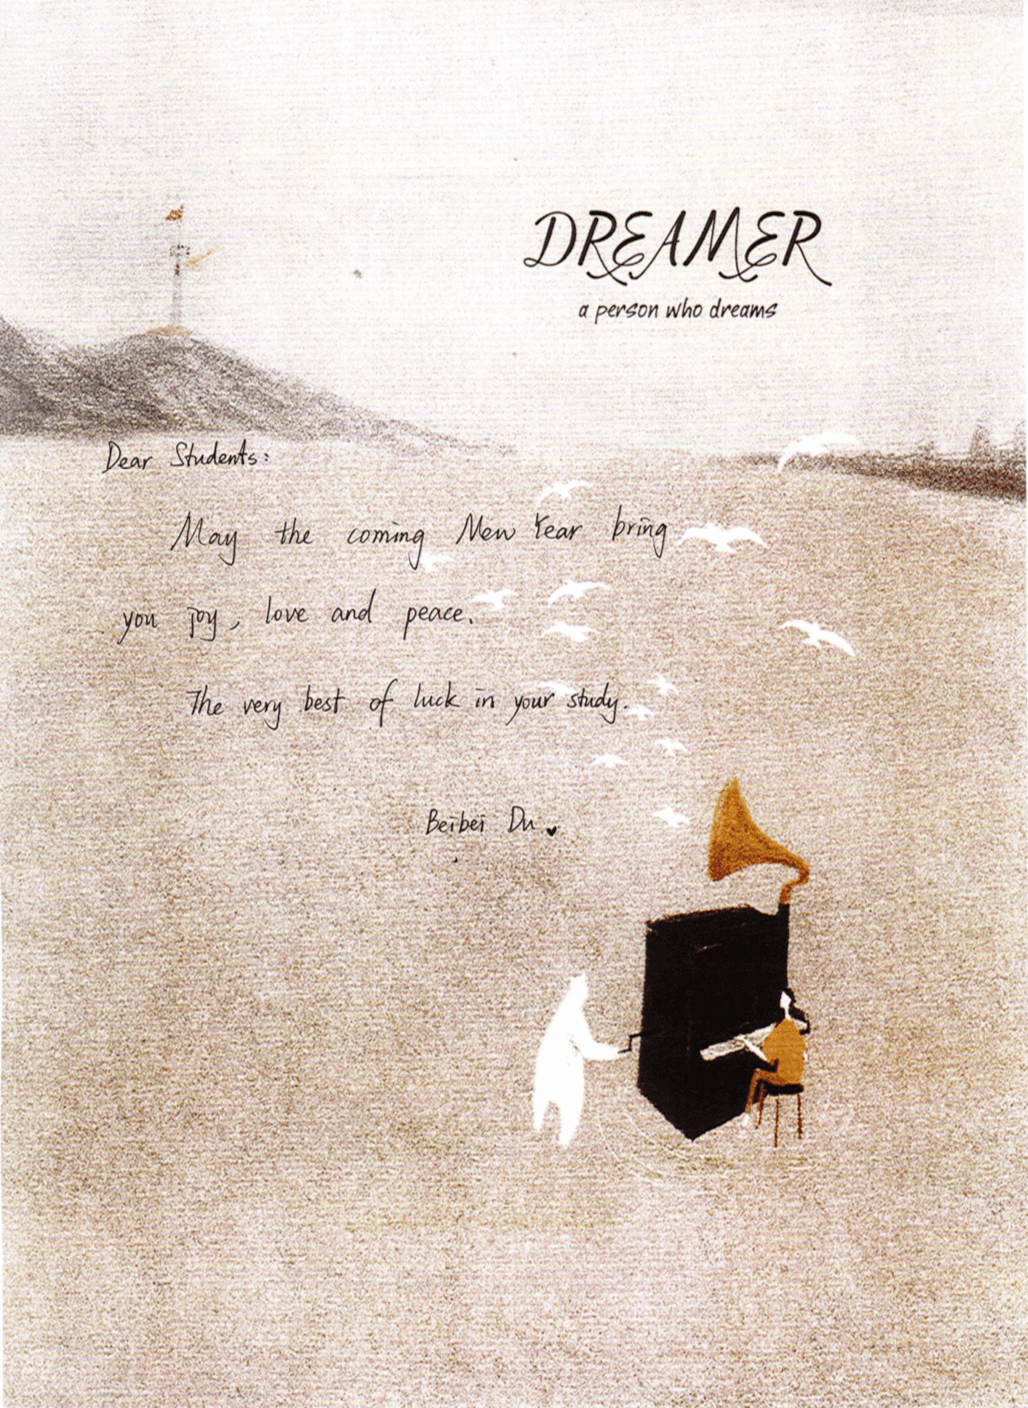 DREAMER
a person who dreams
Dear Students:
May the coming New Year bring
you joy, love and peace.
The very best of luck in your study.
Beibei Du